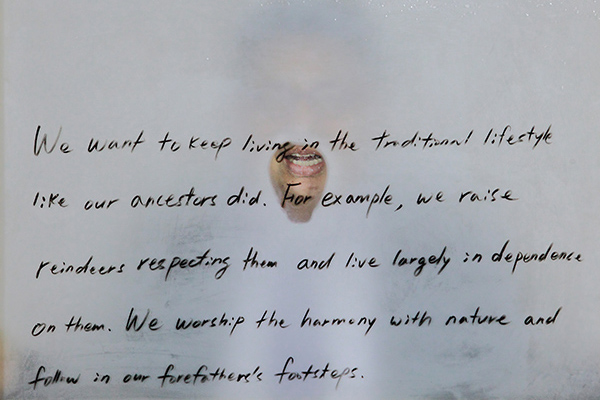 We want to keep living in the traditional lifestyle
like our ancestors did. For example, we raise
reindeers respecting them and live largely in dependence
on them. We worship the harmony with nature and
follow in our forefathers's footsteps.